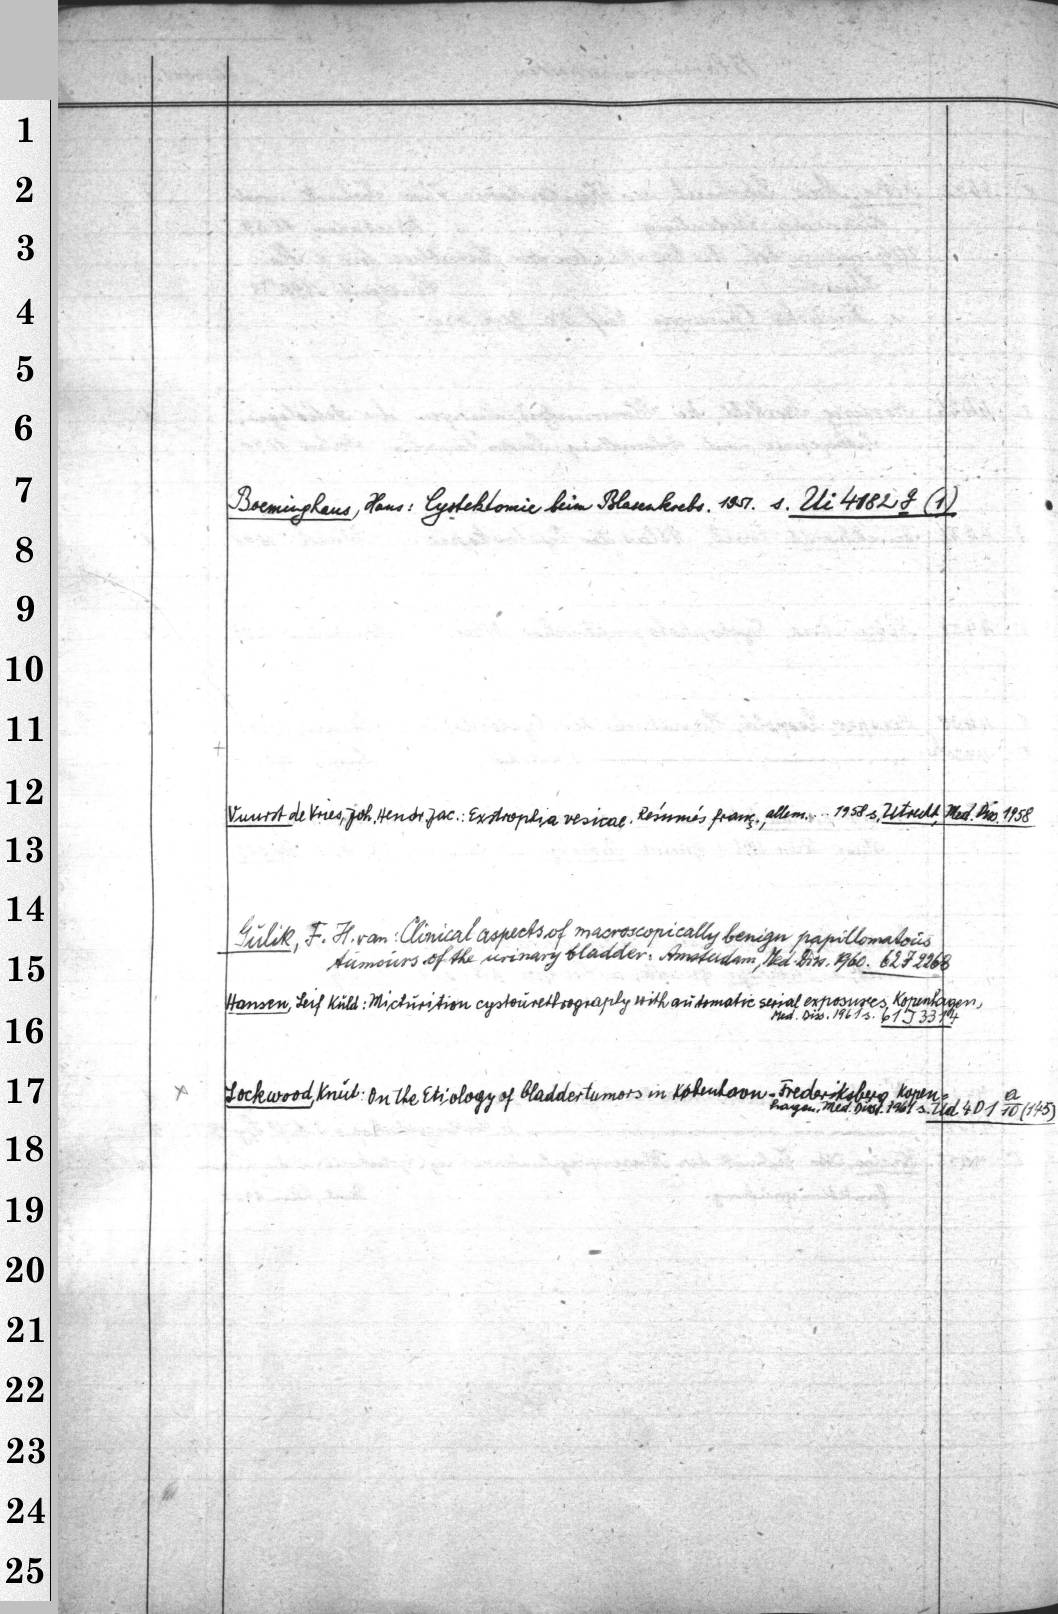 1
2
3
4
5
6
7
Boeminghaus, Hans: Cystektomie beim Blasenkrebs. 1951. s. Ui 4182 g (1)
8
9
10
11
12
Vuurst de Vries, Joh. Hendr. Jac.: Exstrophia vesicae. Résumés franç., allem. 1958 s. Utrecht, Med. Diss. 1958
13
14
Gülik, F. H. van: Clinical aspects of macroscopically benign papillomatoüs
15
tumours of the urinary bladder. Amsterdam, Med. Diss. 1960. 62 J 2268
Hansen, Leif Küld: Mictürition cystoürethrography with automatic serial exposures, Kopenhagen,
16
Med. Diss. 1961 s. 61 J 3314
17
Lockwood, Knüt: On the Etiology of bladdertumors in København-Frederiksberg Kopen-
hagen, Med. Diss. 1961 s. Üd 4 D 1 a/10 (145)
18
19
20
21
22
23
24
25